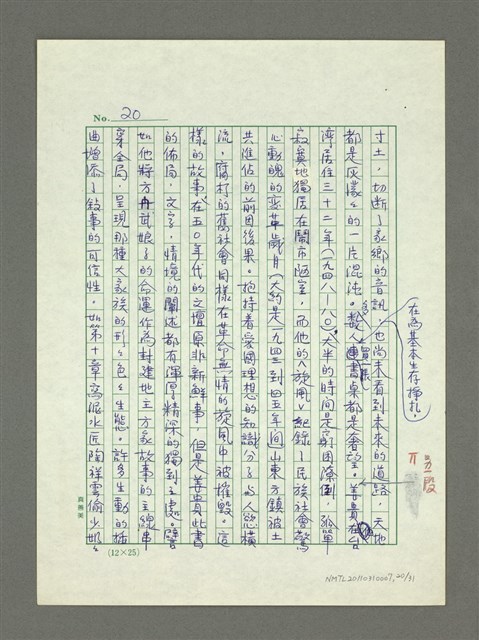 No. 20
寸土，切斷了家鄉的音訊，也尚未看到未來的道路，天地
在為基本生存掙扎，
都是灰濛々的一片混沌。多數人連買一張書桌都是奢望。姜貴在台
另段
灣居住三十二年（一九四八—八〇），大半的時間是窮困潦倒，孤單
寂寞地獨居在鬧市陋室，而他的〈旋風〉紀錄了民族社會驚
心動魄的變革歲月（大約是一九四三到四五年間山東方鎮被土
共進佔的前因後果。抱持着愛國理想的知識分子與人慾橫
流，腐朽的舊社會同樣在革命無情的旋風中被摧毀。這
樣的故事，在五〇年代的文壇原非新鮮事，但是姜貴此書
的佈局，文字，情境的闡述都有渾厚精深的獨到之處。譬
如他將方冉武娘子的命運作為封建地主方家故事的主線串
穿全局，呈現那種大家族的形々色々生態。許多生動的插
曲增添了敘事的可信性，如第十章寫泥水匠陶祥雲偷少奶々
(12×25)
NMTL20150310007, 20/31